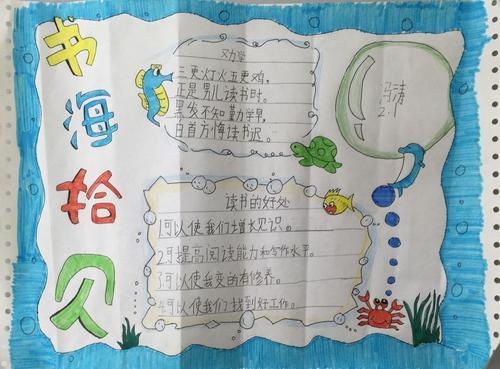 书海拾贝
劝学
三更灯火五更鸡，
正是男儿读书时。
黑发不知勤学早，
白首方悔读书迟。
2.1
读书的好处
1可以使我们增长见识。
2.可提高阅读能力和写作水平。
3可以使我变的有修养。
4.可以使我们找到好工作。